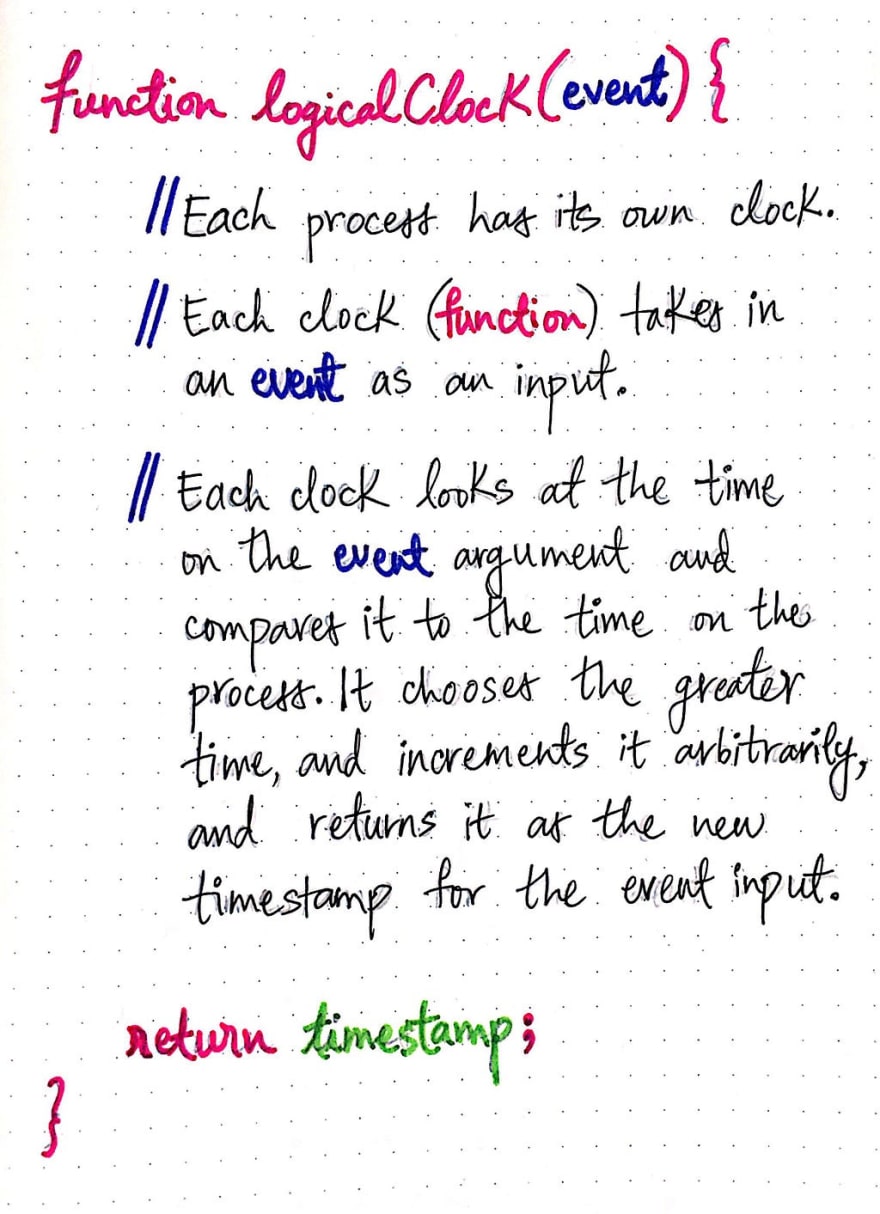 function logicalClock(event){
// Each process has its own clock.
// Each clock (function) takes in
an event as an input.
// Each clock looks at the time
on the event argument and
compares it to the time on the
process. It chooses the greater
time, and increments it arbitrarily,
and returns it as the new
timestamp for the event input.
return timestamp;
}